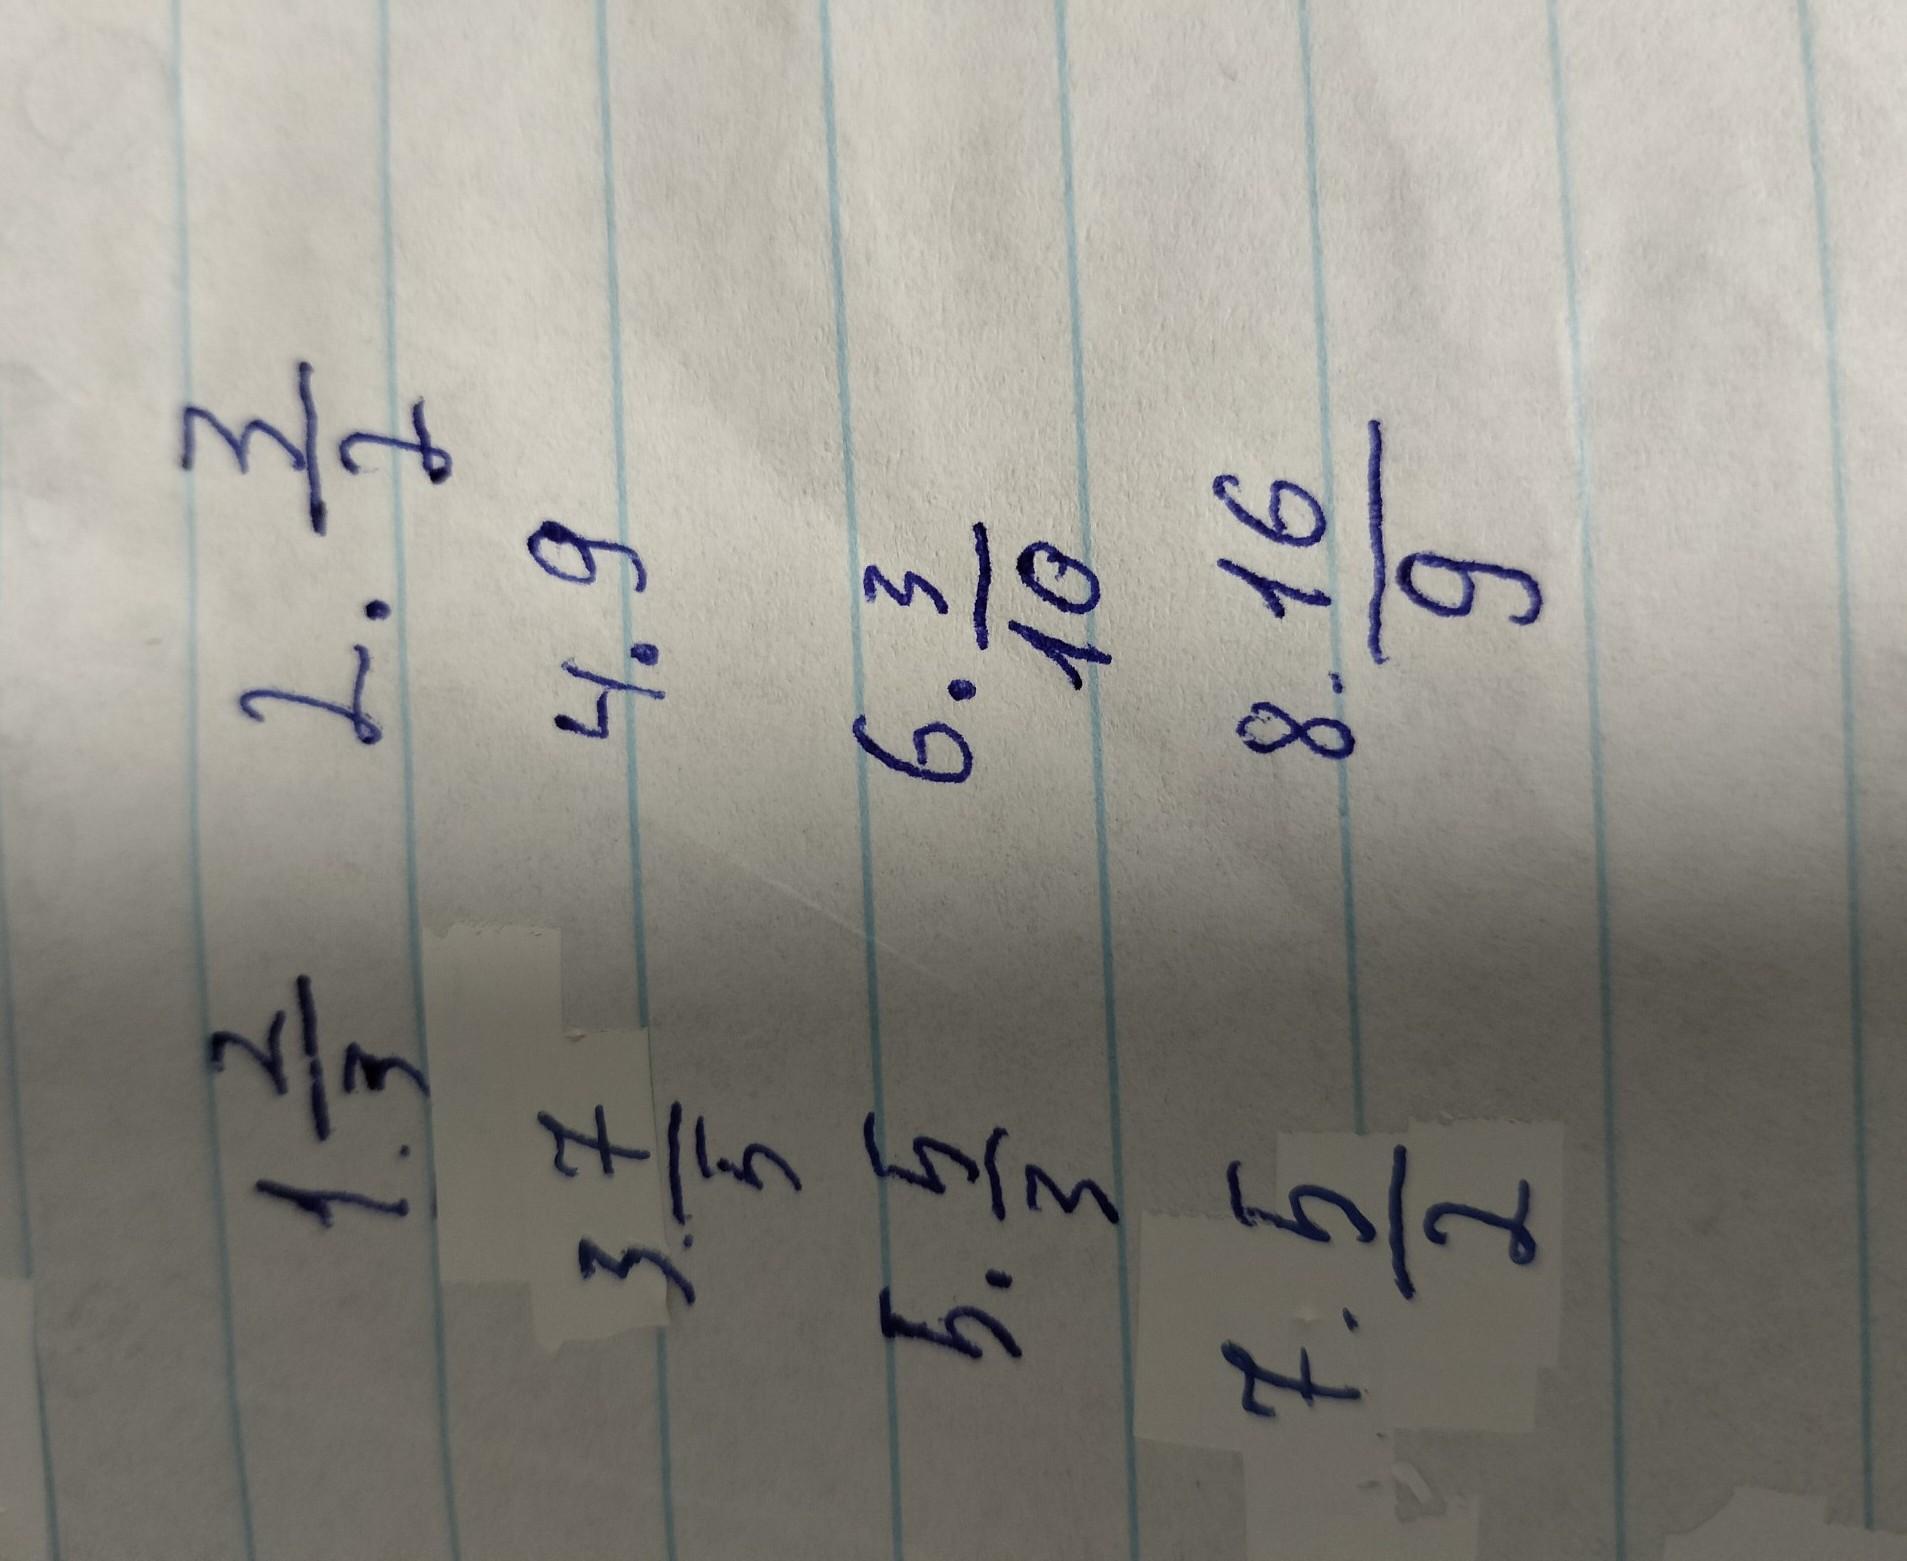 1. 2/3 2. 3/2
3. 7/5 4. 9
5. 5/3 6. 3/10
7. 5/2 8. 16/9